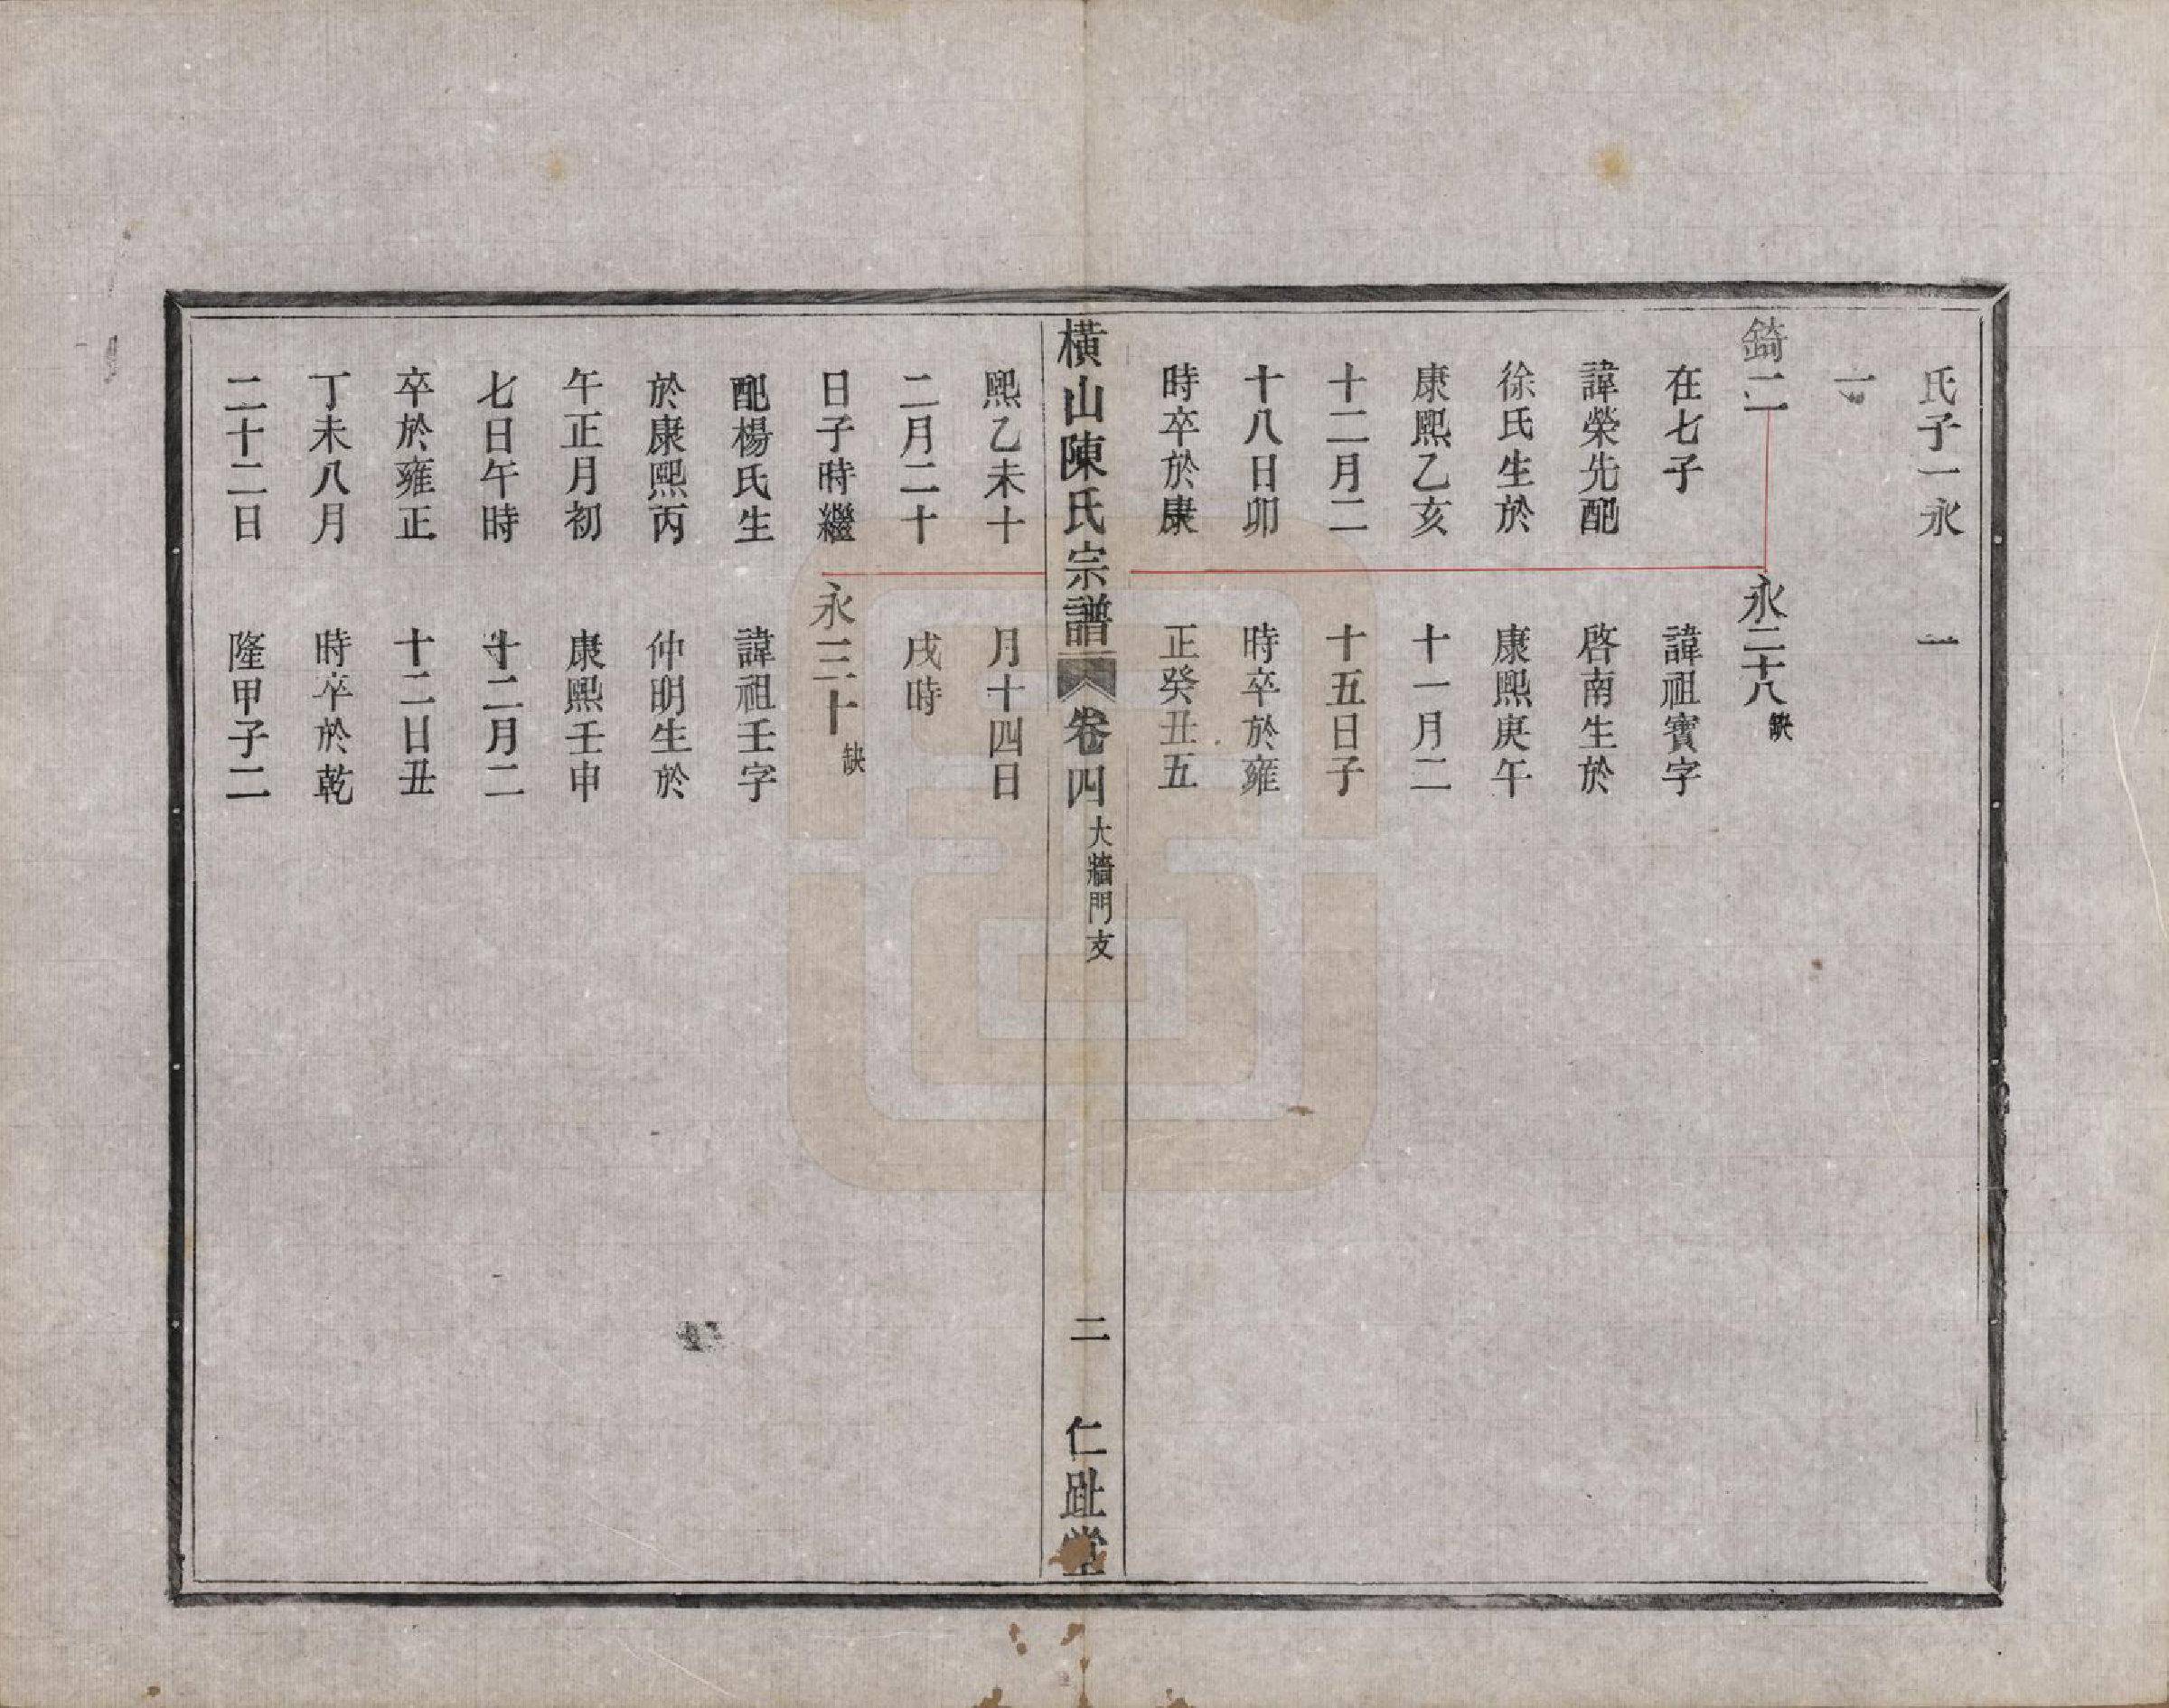 氏子一永
一
一
錡二
永二十八缺
在七子
諱祖寳字
諱榮先配
啓南生於
徐氏生於
康熙庚午
康熙乙亥
十一月二
十二月二
十五日子
十八日卯
時卒於雍
時卒於康
正癸丑五
橫山陳氏宗譜
卷四
大牆門支
二
仁趾堂
熙乙未十
月十四日
二月二十
戌時
日子時繼
永三十缺
配楊氏生
諱祖壬字
於康熙丙
仲明生於
午正月初
康熙壬申
七日午時
十二月二
卒於雍正
十二日丑
丁未八月
時卒於乾
二十二日
隆甲子二